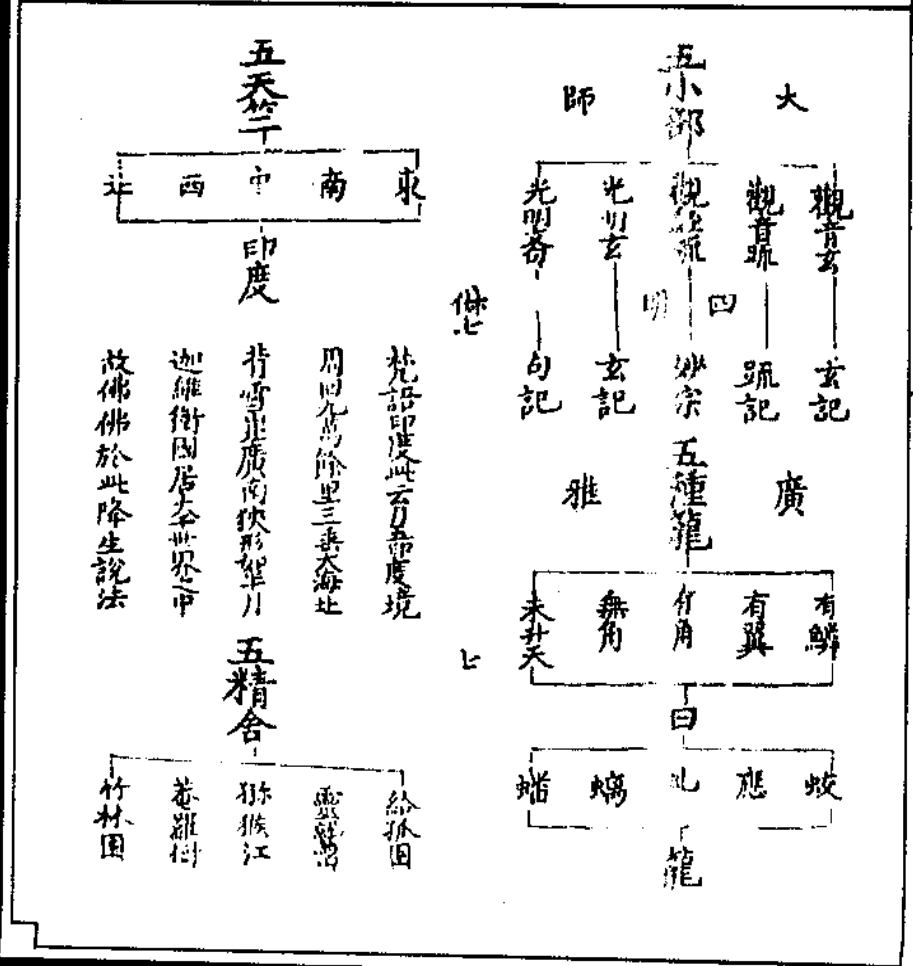 五小部
大師
觀音玄
觀音疏
觀經疏
光明玄
光明
四明
玄記
疏記
妙宗
玄記
句記
五種龍
廣雅
有鱗
有翼
有角
無角
未升天
曰
蛟
應
虬
螭
蟠
龍
七
五天竺
東
南
中
西
北
印度
梵語印度此云月 境
周回九萬餘里三垂大海北
背雪 廣南狹形如半月
迦維衛國居 世界之中
故佛佛於此降生說法
五精舍
給孤园
靈鷲
猕猴江
菴羅樹
竹林园